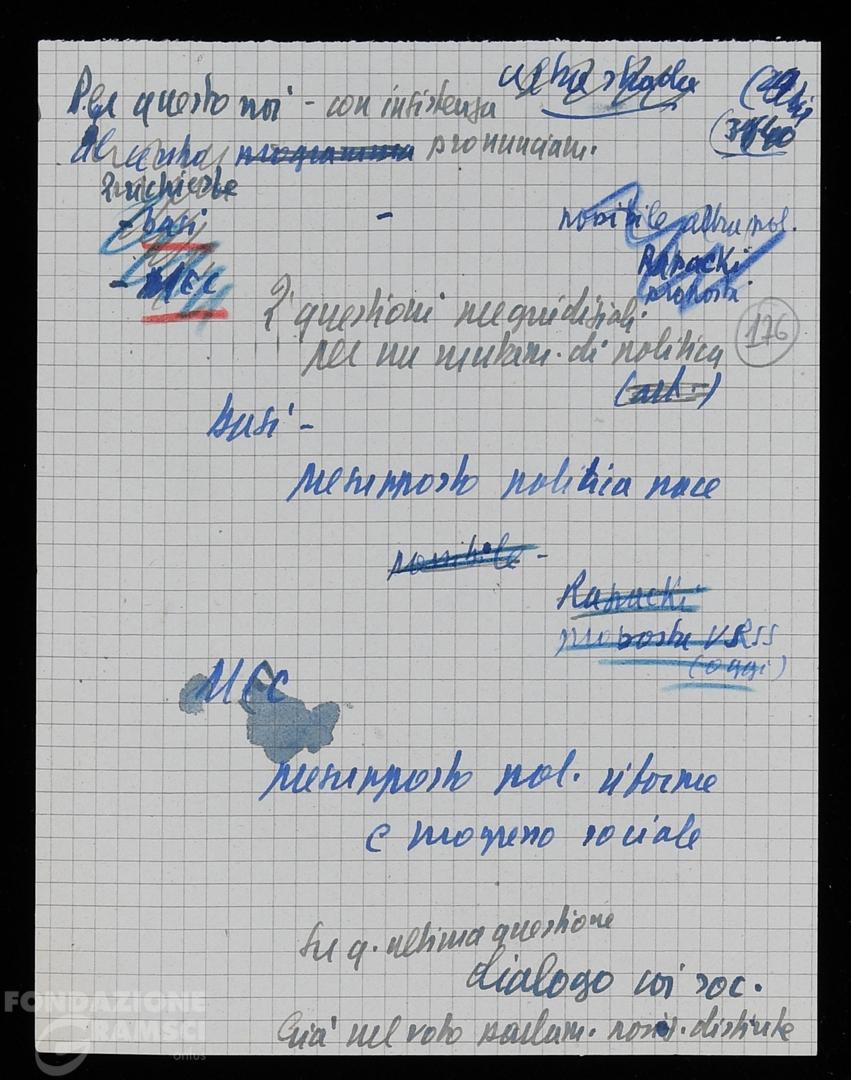 altra strada
Per questo noi - con insistenza
programma pronunciam.
2 richieste
- basi -
possibile altra pol.
Rapacki
proposta
- MEC
2 questioni pregiudiziali
176
per un mutam. di politica
basi -
presupposto politica pace
possibile -
Rapacki
proposta URSS
(oggi)
MEC
presupposto pol. riforme
e progresso sociale
Su q. ultima questione
dialogo coi soc.
Già nel voto parlam. posiz. distinte
FONDAZIONE
GRAMSCI
onlus